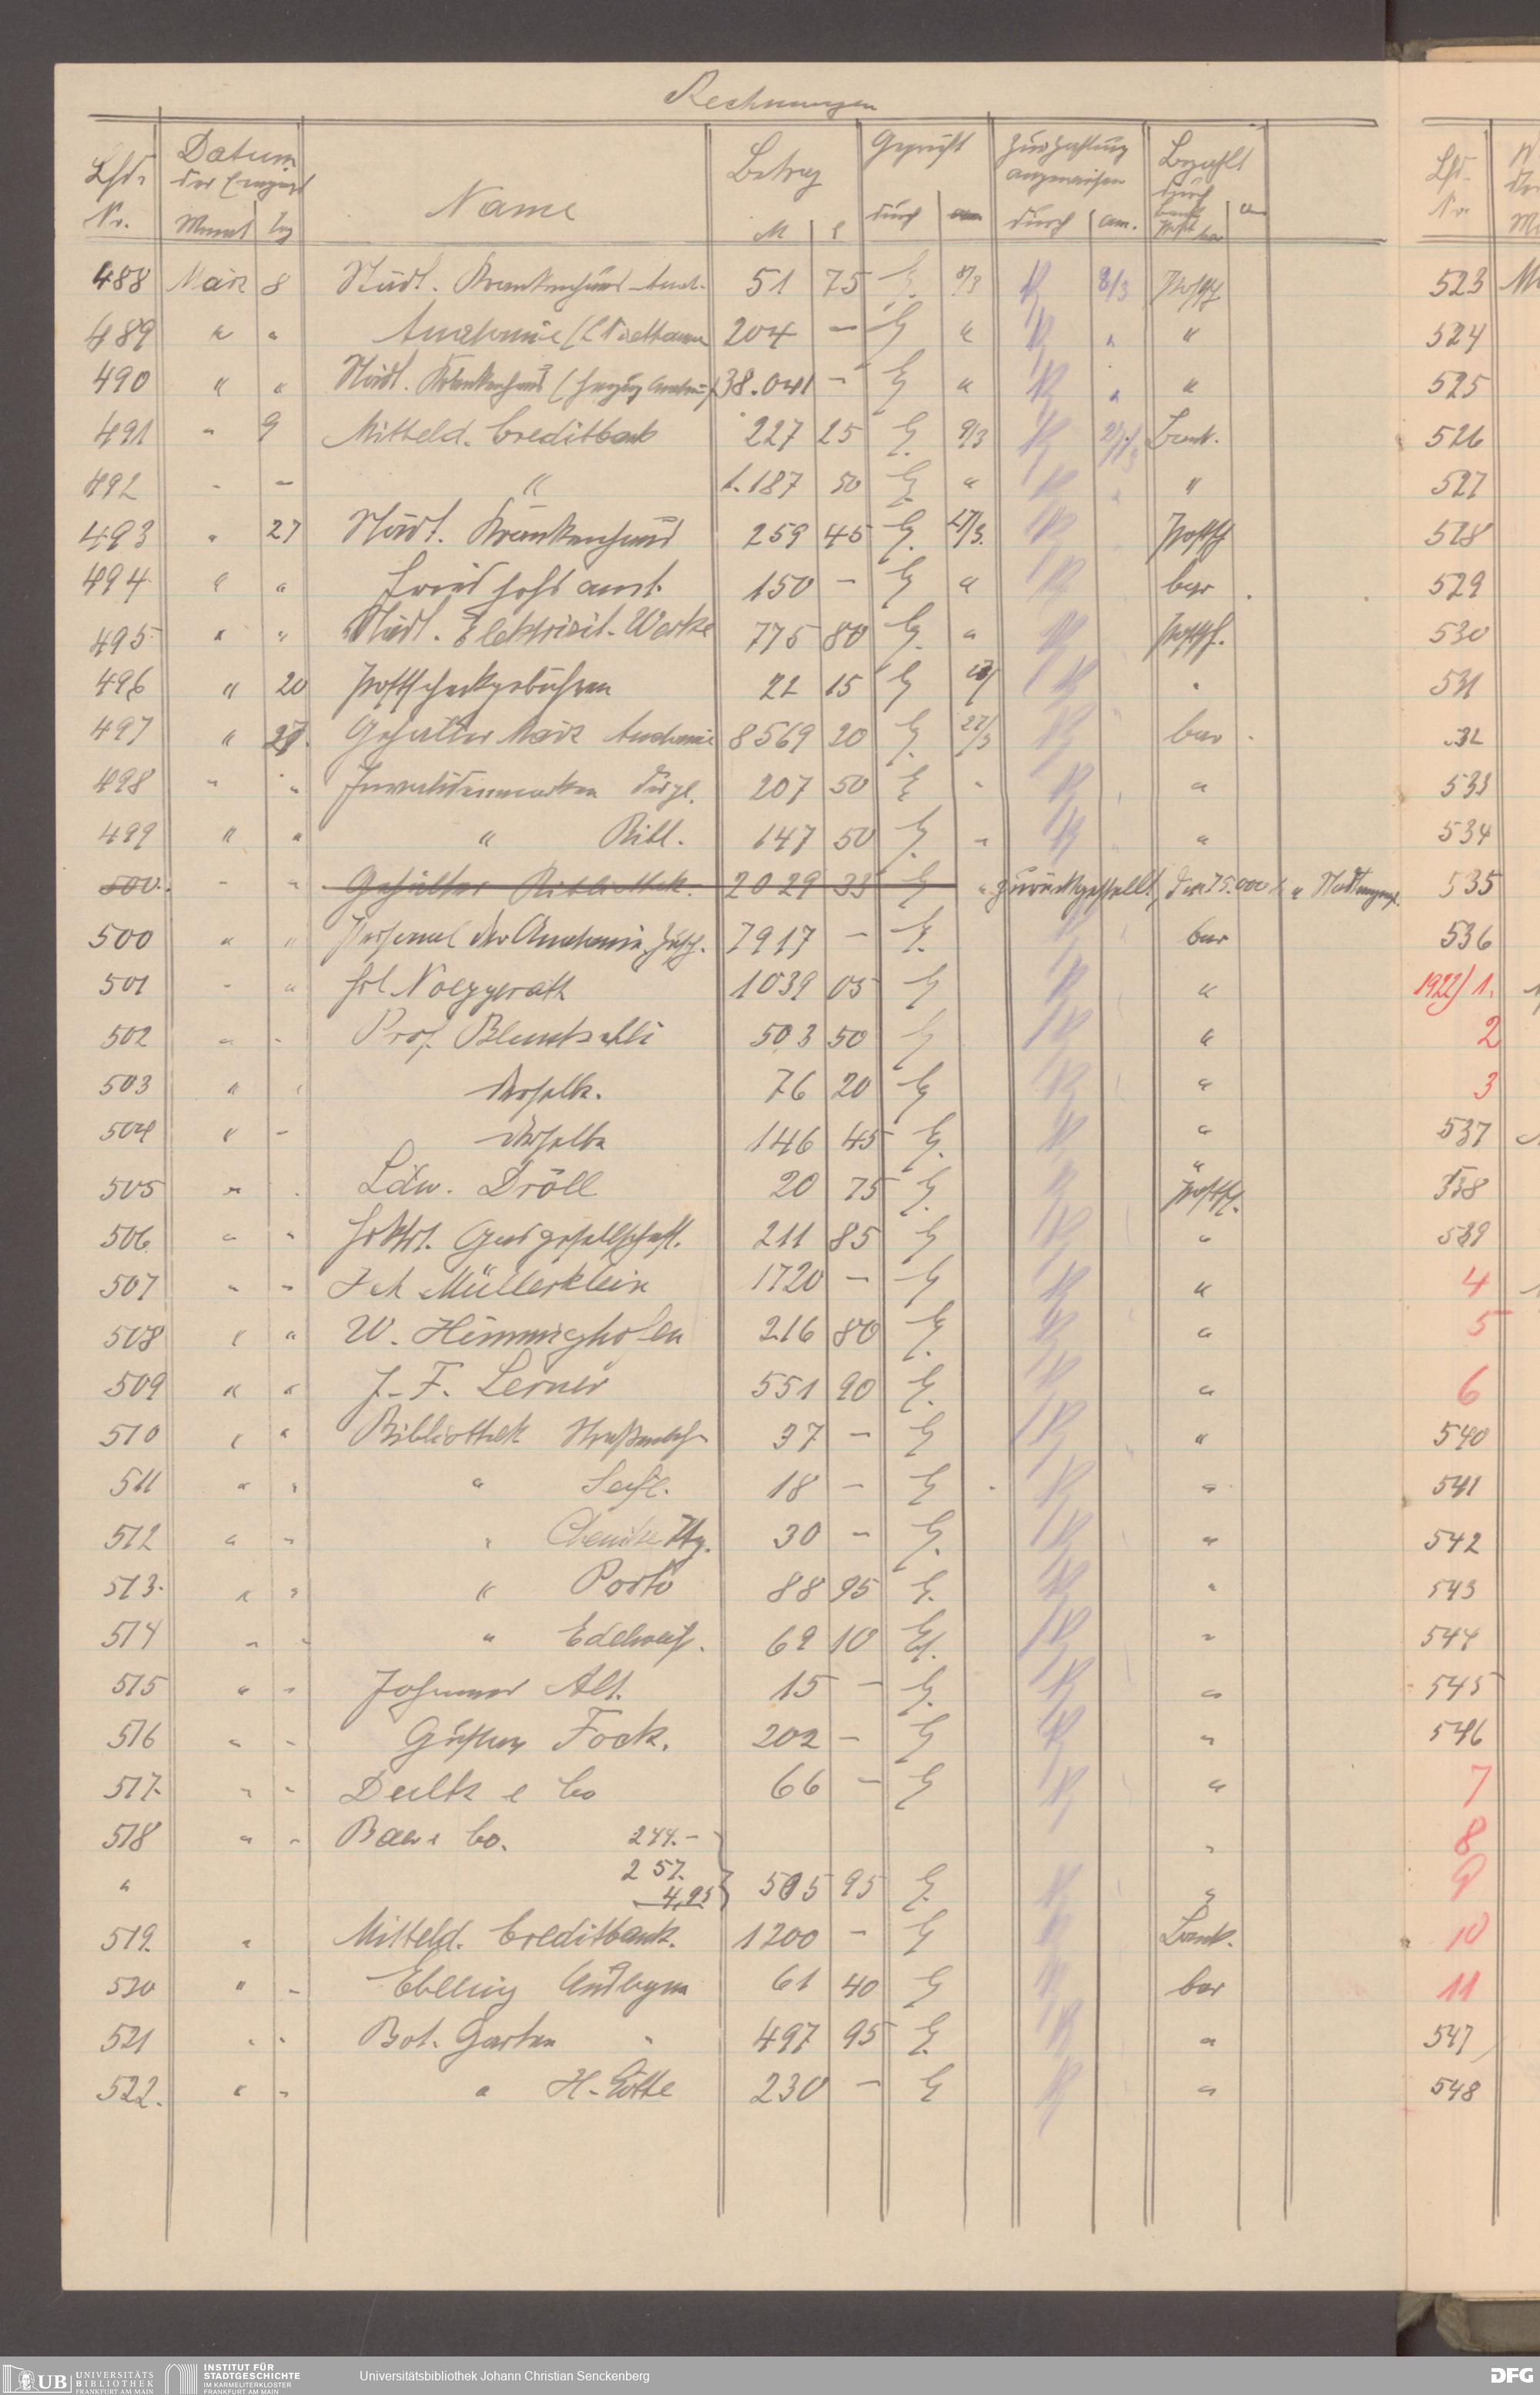 Rechnungen
Lfd. Nr. Datum der Monat Tag Name Betrag M Geprüft durch am Zur Zahlung angewiesen durch am. Bezahlt durch Bank Post bar am
488 März 8 Städt. Krankenhaus 51 75 G. 8/3 8/3 Postsch
489 " " Anatomie 204 — G " " "
490 " " Städt. Krankenhaus 38.041 — G " " "
491 " 9 Mitteld. Creditbank 227 25 G. 9/3 Bank.
492 " — " 1.187 50 G. " " "
493 " 27 Städt. Krankenhaus 259 45 G. 27/3. Postsch
494 " " Friedhofsamt. 150 — G " bar
495 " " Städt. Elektrizit. Werke 775 80 G. " Postsch.
496 " 20 Postscheckgebühren 22 15 G "
497 " 27. Gehälter März Anatomie 8569 20 G. 27/3 bar
498 " " Invalidenmarken 207 50 G " "
499 " " " Bibl. 147 50 G. " "
500. " " Gehälter Bibliothek. 2029 33 G " zurückgestellt,
500 " " Personal der Anatomie 7917 — G. bar
501 " " Frl Noeggerath 1039 05 G "
502 " " Prof. Bluntschli 503 50 G "
503 " " derselb. 76 20 G "
504 " " derselbe 146 45 G. "
505 " " Ldw. Dröll 20 75 G. Postsch.
506 " " Frkft. Gasgesellschaft. 211 85 G "
507 " " Müllerklein 1720 — G "
508 " " W. Himmighofen 216 80 G. "
509 " " J. F. Lerner 551 90 G. "
510 " " Bibliothek 37 — G "
511 " " " Seife. 18 — G "
512 " " " Ztg. 30 — G. "
513. " " " Porto 88 95 G. "
514 " " " 69 10 G. "
515 " " Johannes Alt. 15 — G. "
516 " " Gustav Fock. 202 — G "
517. " " & Co 66 — G "
518 " " Baer & Co. 244.— "
" 257.
4,95 505 95 G. "
519. " Mitteld. Creditbank. 1200 — G Bank.
520 " " Ebeling 61 40 G bar
521 " " Bot. Garten " 497 95 G. "
522. " " " 230 — G "
Lfd. Nr.
523
524
525
526
527
528
529
530
531
32
533
534
535
536
1922/ 1.
2
3
537
538
539
4
5
6
540
541
542
543
544
545
546
7
8
9
10
11
547
548
UB UNIVERSITÄTS BIBLIOTHEK FRANKFURT AM MAIN
INSTITUT FÜR STADTGESCHICHTE IM KARMELITERKLOSTER FRANKFURT AM MAIN
Universitätsbibliothek Johann Christian Senckenberg
DFG